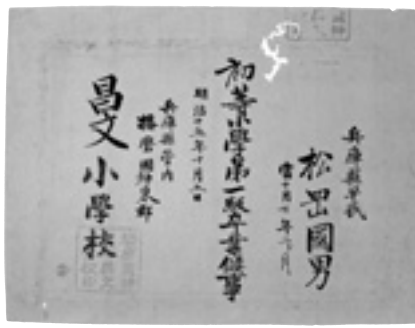 兵庫縣平民
松岡國男
當十月七年三ヶ月
初等小學第一級卒業候事
明治十五年十月五日
兵庫縣管内
播磨國神東郡
昌文小學校